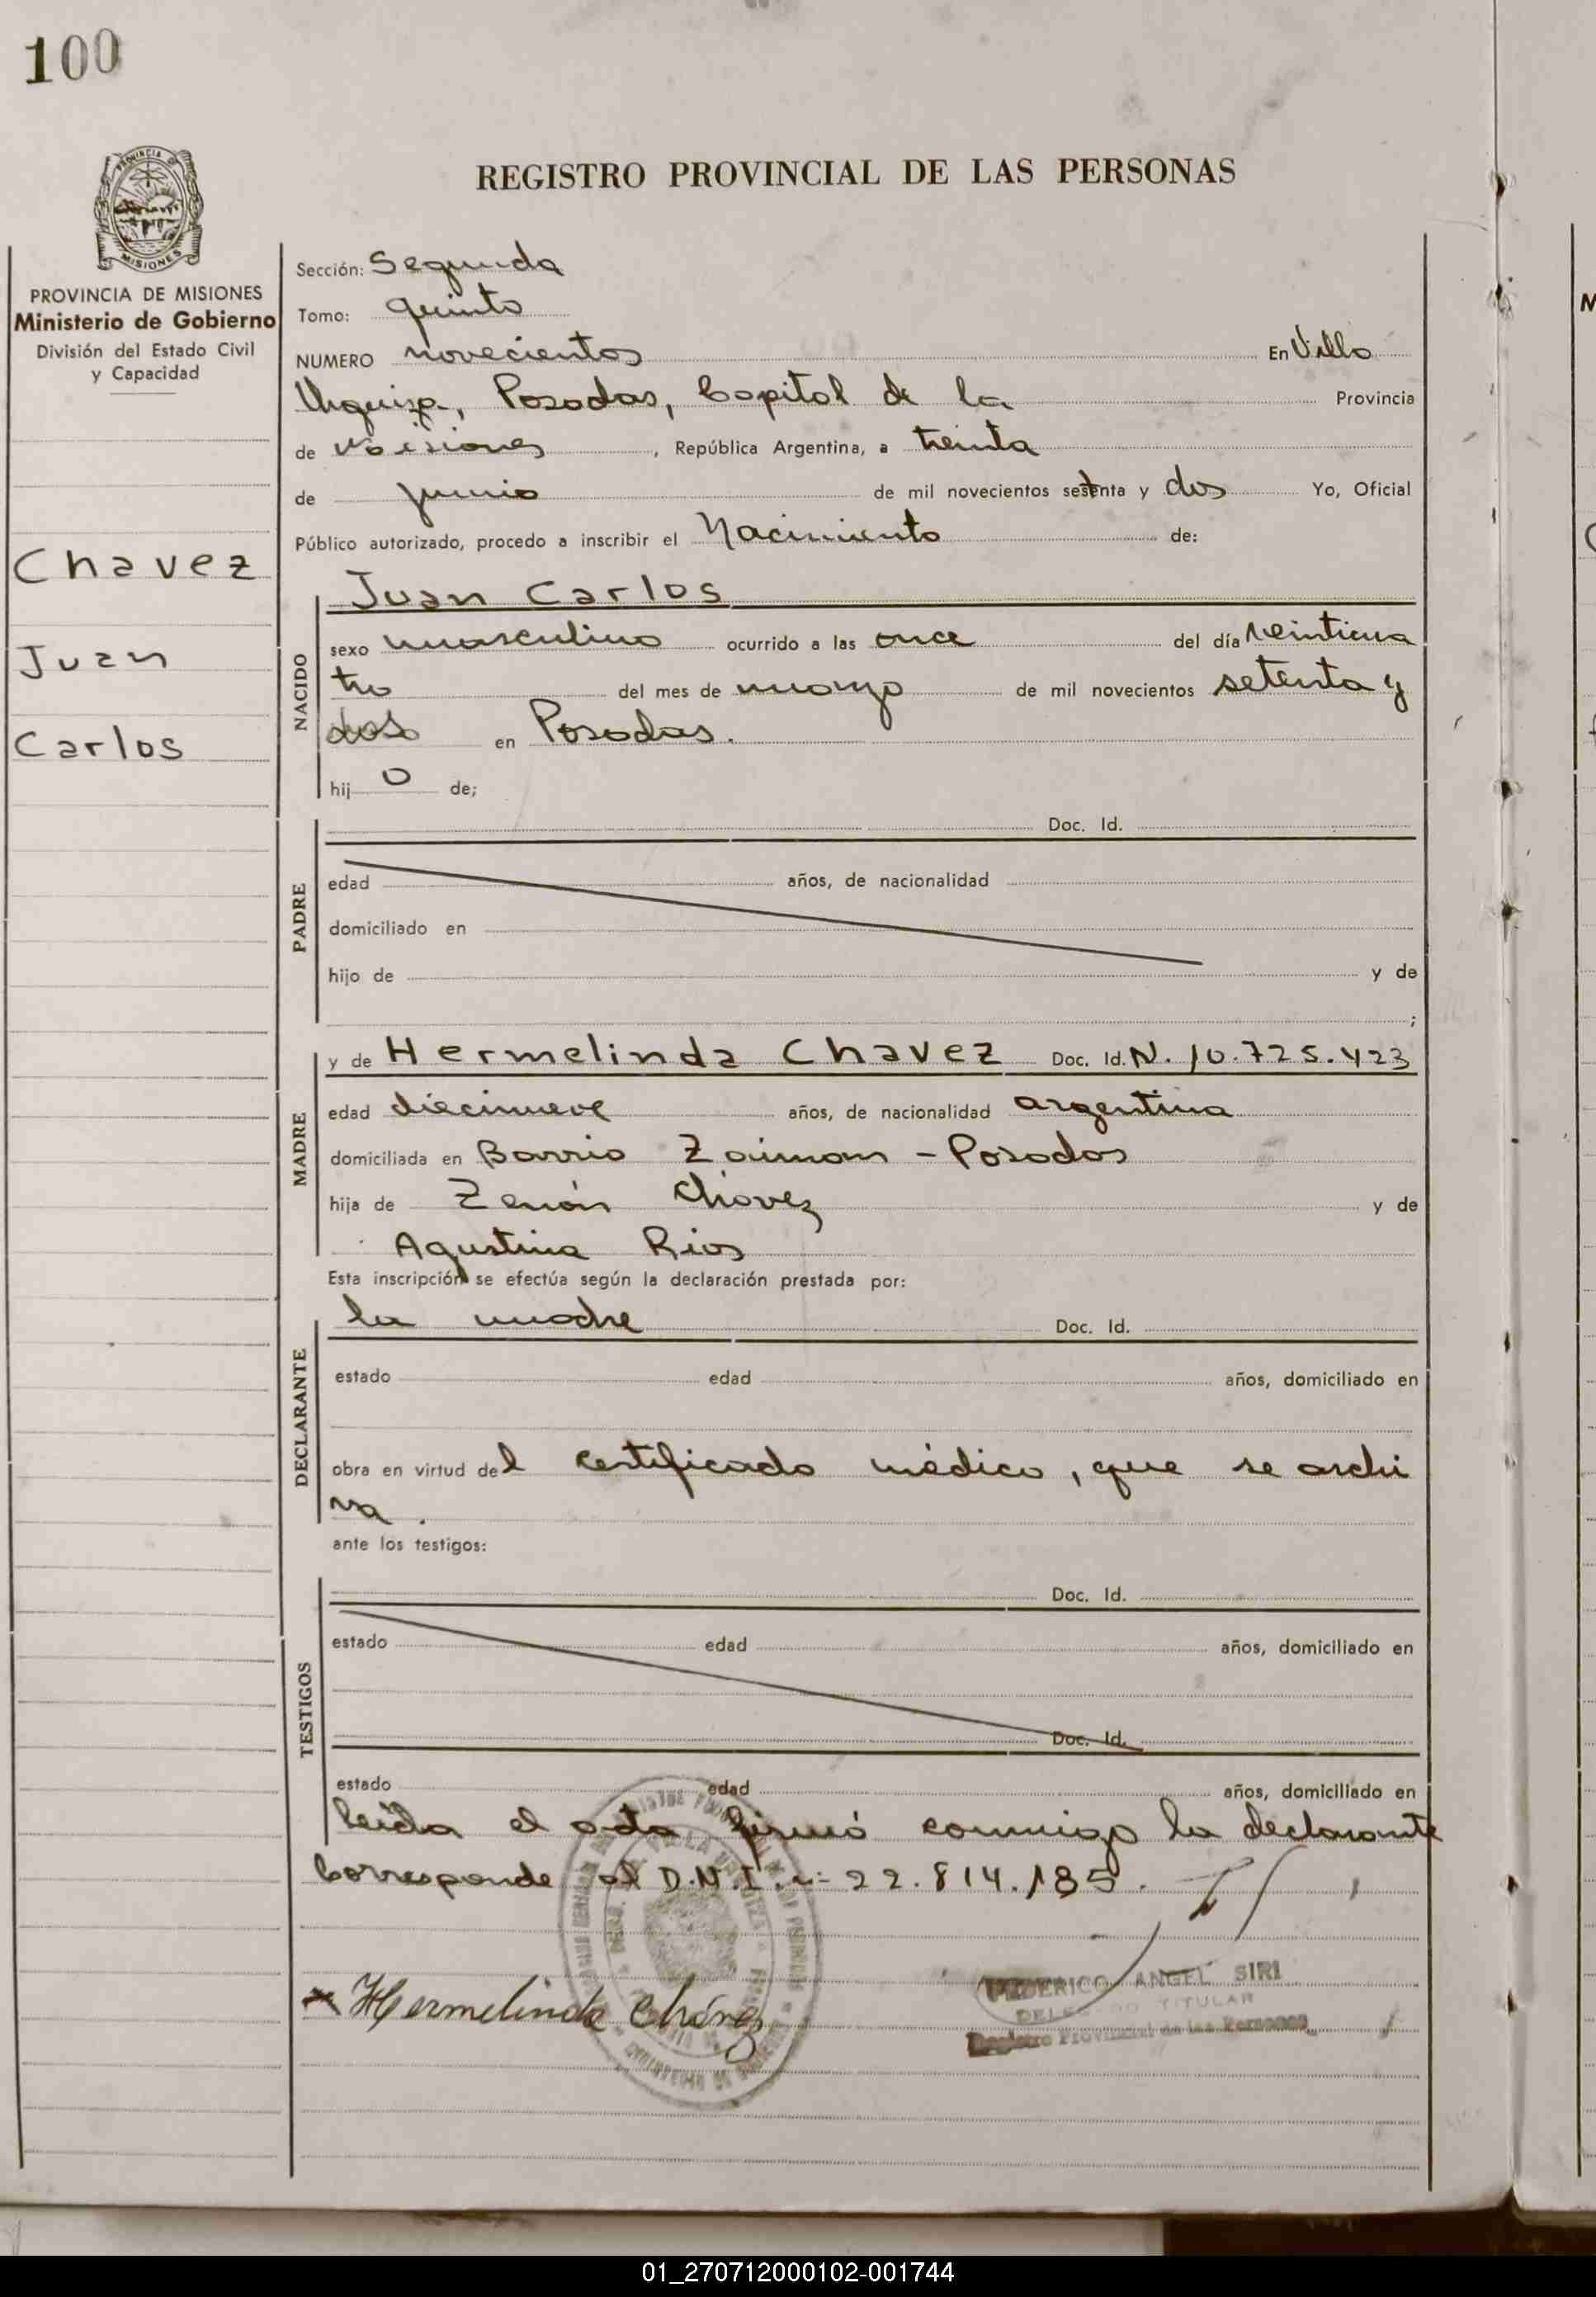 100
REGISTRO PROVINCIAL DE LAS PERSONAS
PROVINCIA DE MISIONES
PROVINCIA DE MISIONES
Ministerio de Gobierno
División del Estado Civil
y Capacidad
Chavez
Juan
Carlos
Sección: Segunda
Tomo: quinto
NUMERO novecientos En Villa
Urquiza, Posadas, Capital de la Provincia
de Misiones, República Argentina, a treinta
de junio de mil novecientos setenta y dos Yo, Oficial
Público autorizado, procedo a inscribir el Nacimiento de:
NACIDO
Juan Carlos
sexo masculino ocurrido a las once del día veinticua
tro del mes de marzo de mil novecientos setenta y
dos en Posadas.
hij o de;
PADRE
Doc. Id.
edad años, de nacionalidad
domiciliado en
hijo de y de
;
MADRE
y de Hermelinda Chavez Doc. Id. N. 10.725.423
edad diecinueve años, de nacionalidad argentina
domiciliada en Barrio Zaiman - Posadas
hija de Zenón Chávez y de
Agustina Rios
Esta inscripción se efectúa según la declaración prestada por:
DECLARANTE
la madre Doc. Id.
estado edad años, domiciliado en
obra en virtud del certificado médico, que se archi
va.
ante los testigos:
TESTIGOS
Doc. Id.
estado edad años, domiciliado en
Doc. Id.
estado edad años, domiciliado en
leída el acta firmó conmigo la declarante
Corresponde al D.N.I. n- 22.814.185.
Hermelinda Chávez
FEDERICO ANGEL SIRI
TITULAR
Registro Provincial de las Personas
01_270712000102-001744